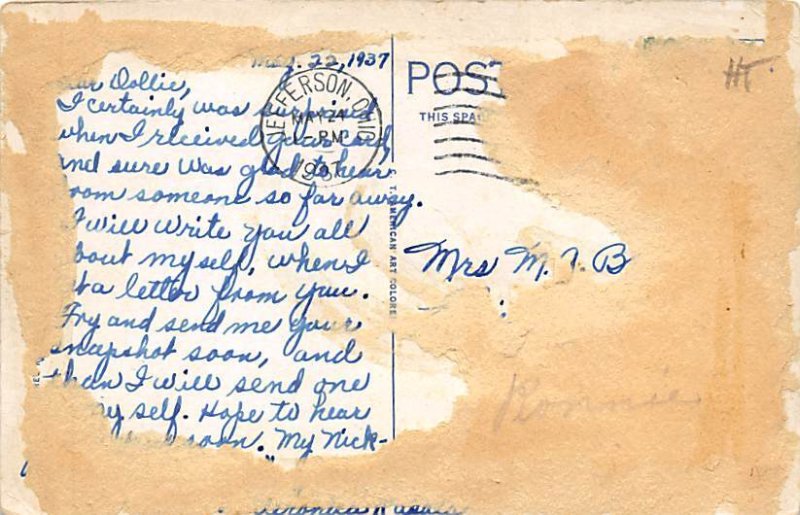 May. 22, 1937
Dollie,
I certainly was surprised
when I received your card,
and sure was glad to hear
rom someone so far away.
I will write you all
bout myself, when I
a letter from you.
Try and send me your
snapshot soon, and
than I will send one
my self. Hope to hear
soon. "My Nick-
JEFFERSON, OHIO
MAY 24
PM
1937
POST
THIS SPAC
C. T. AMERICAN ART COLORE
Mrs M. T. B
Ronnie
HT